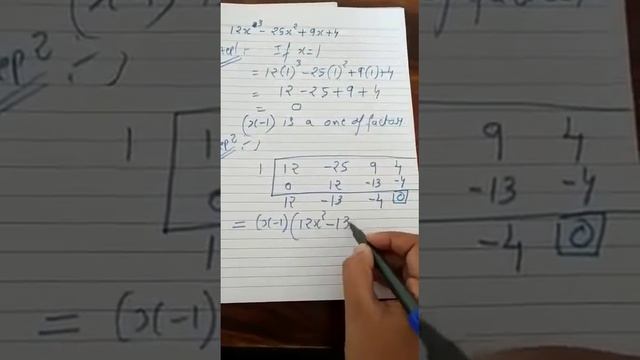 12x³ - 25x² + 9x + 4
If x = 1
= 12(1)³ - 25(1)² + 9(1) + 4
= 12 - 25 + 9 + 4
= 0
(x-1) is a one of factors
1 12 -25 9 4
0 12 -13 -4
12 -13 -4 0
= (x-1)(12x² - 13